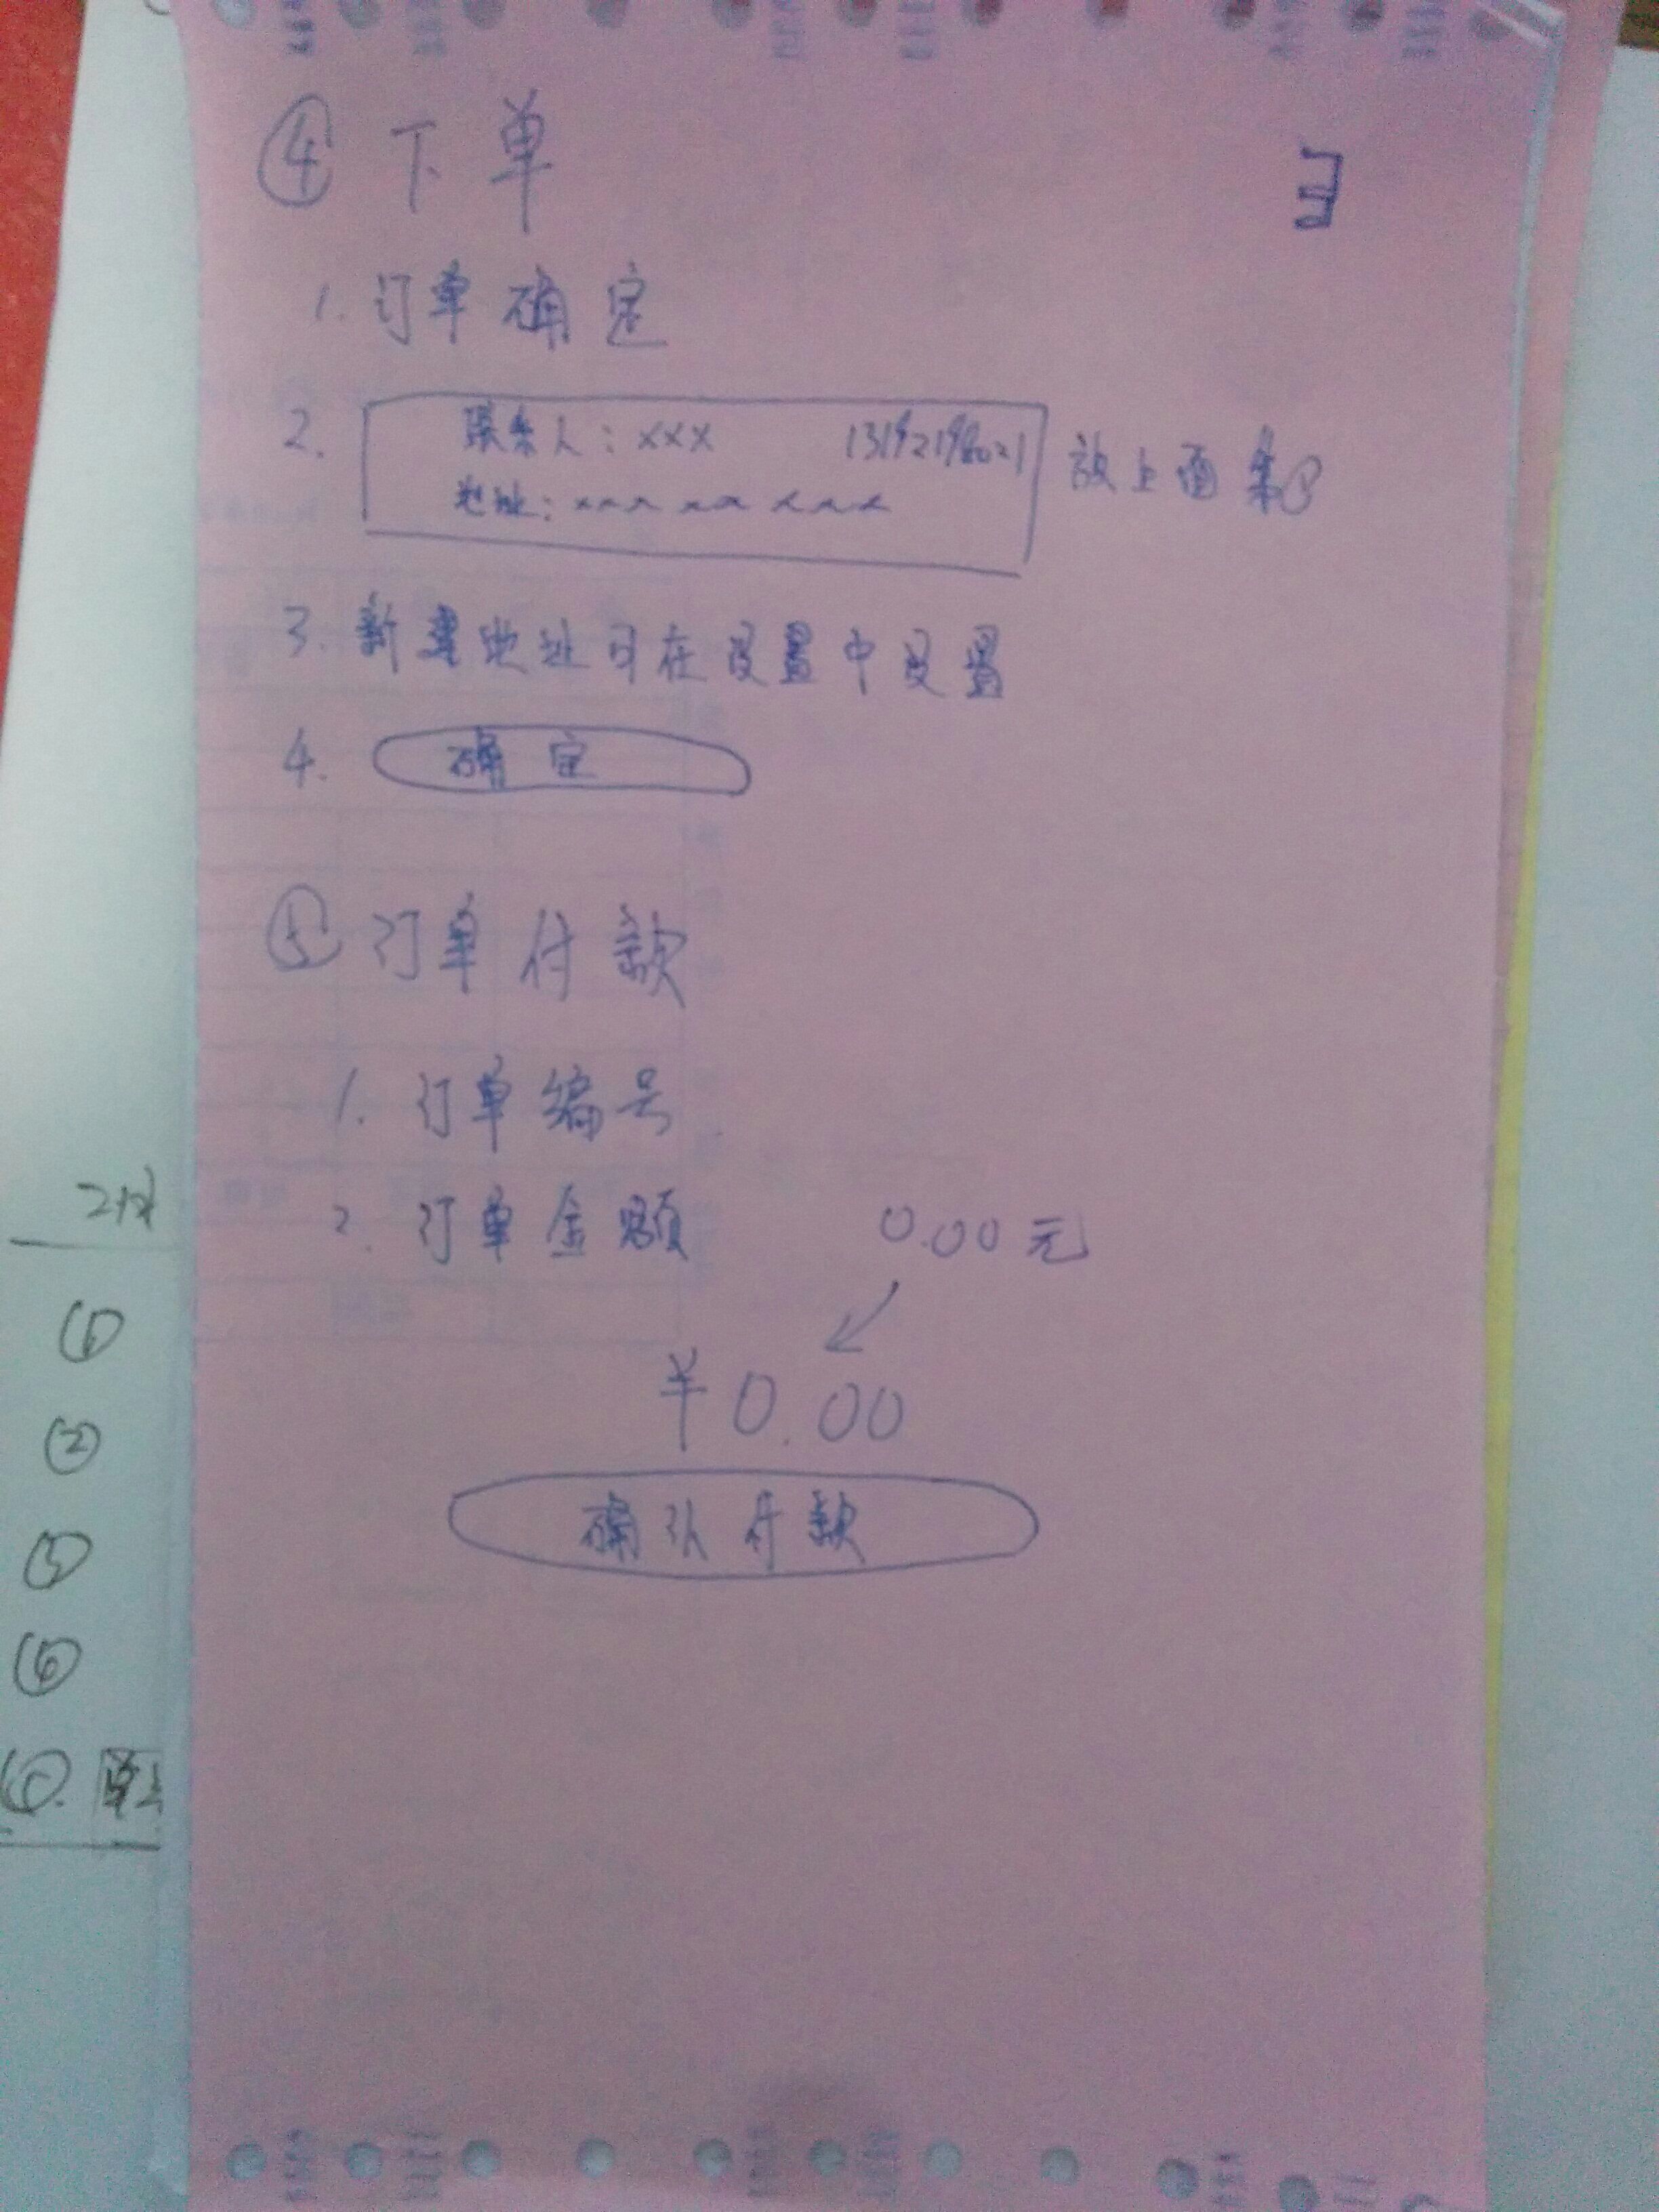 ④ 下单
3
1. 订单确定
2. 联系人：xxx 13192198021 放上面
地址：xxx xx xxxx
3. 新建地址可在设置中设置
4. 确定
⑤ 订单付款
1. 订单编号
2. 订单金额 0.00元
¥0.00
确认付款
①
②
⑥